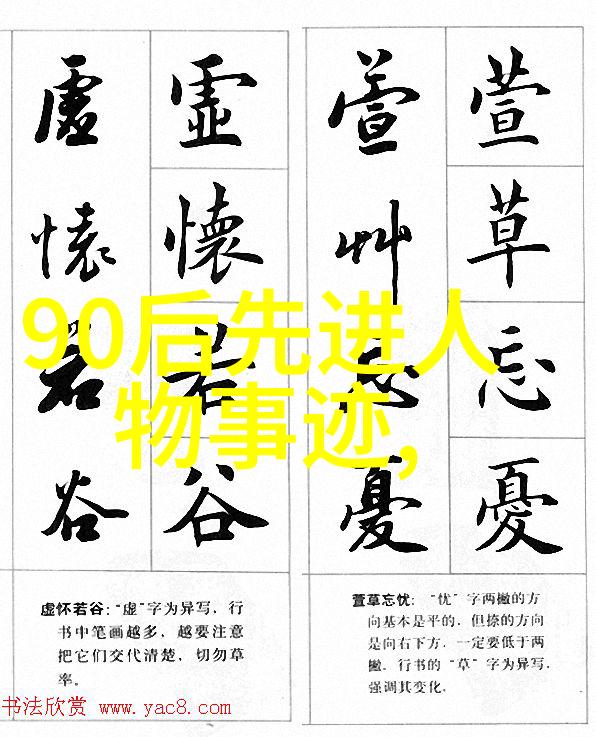 萱草忘憂
萱艸忘憂
虛懷若谷
虛懷若谷
90后先进人
物事迹,
萱草忘忧：“忧”字两撇的方
向基本是平的，但捺的方向
是向右下方，一定要低于两
撇。行书的“草”字为异写，
强调其变化。
虚怀若谷：“虚”字为异写，行
书中笔画越多，越要注意
把它们交代清楚，切勿草
率。
书法欣赏 www.yac8.com